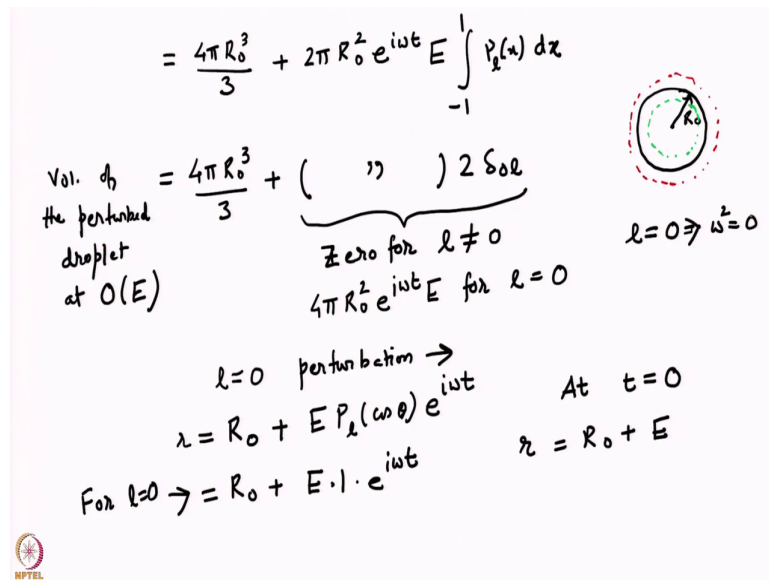 = 4πR₀³/3 + 2πR₀² e^{iωt} E ∫_{-1}^{1} Pₗ(x) dx
R₀
Vol. of the perturbed droplet at O(E) = 4πR₀³/3 + ( " ) 2 δ₀ₗ
Zero for l ≠ 0
l = 0 ⇒ ω² = 0
4πR₀² e^{iωt} E for l = 0
l = 0 perturbation →
r = R₀ + E Pₗ(cos θ) e^{iωt}
At t = 0
r = R₀ + E
For l=0 → = R₀ + E·1·e^{iωt}
NPTEL